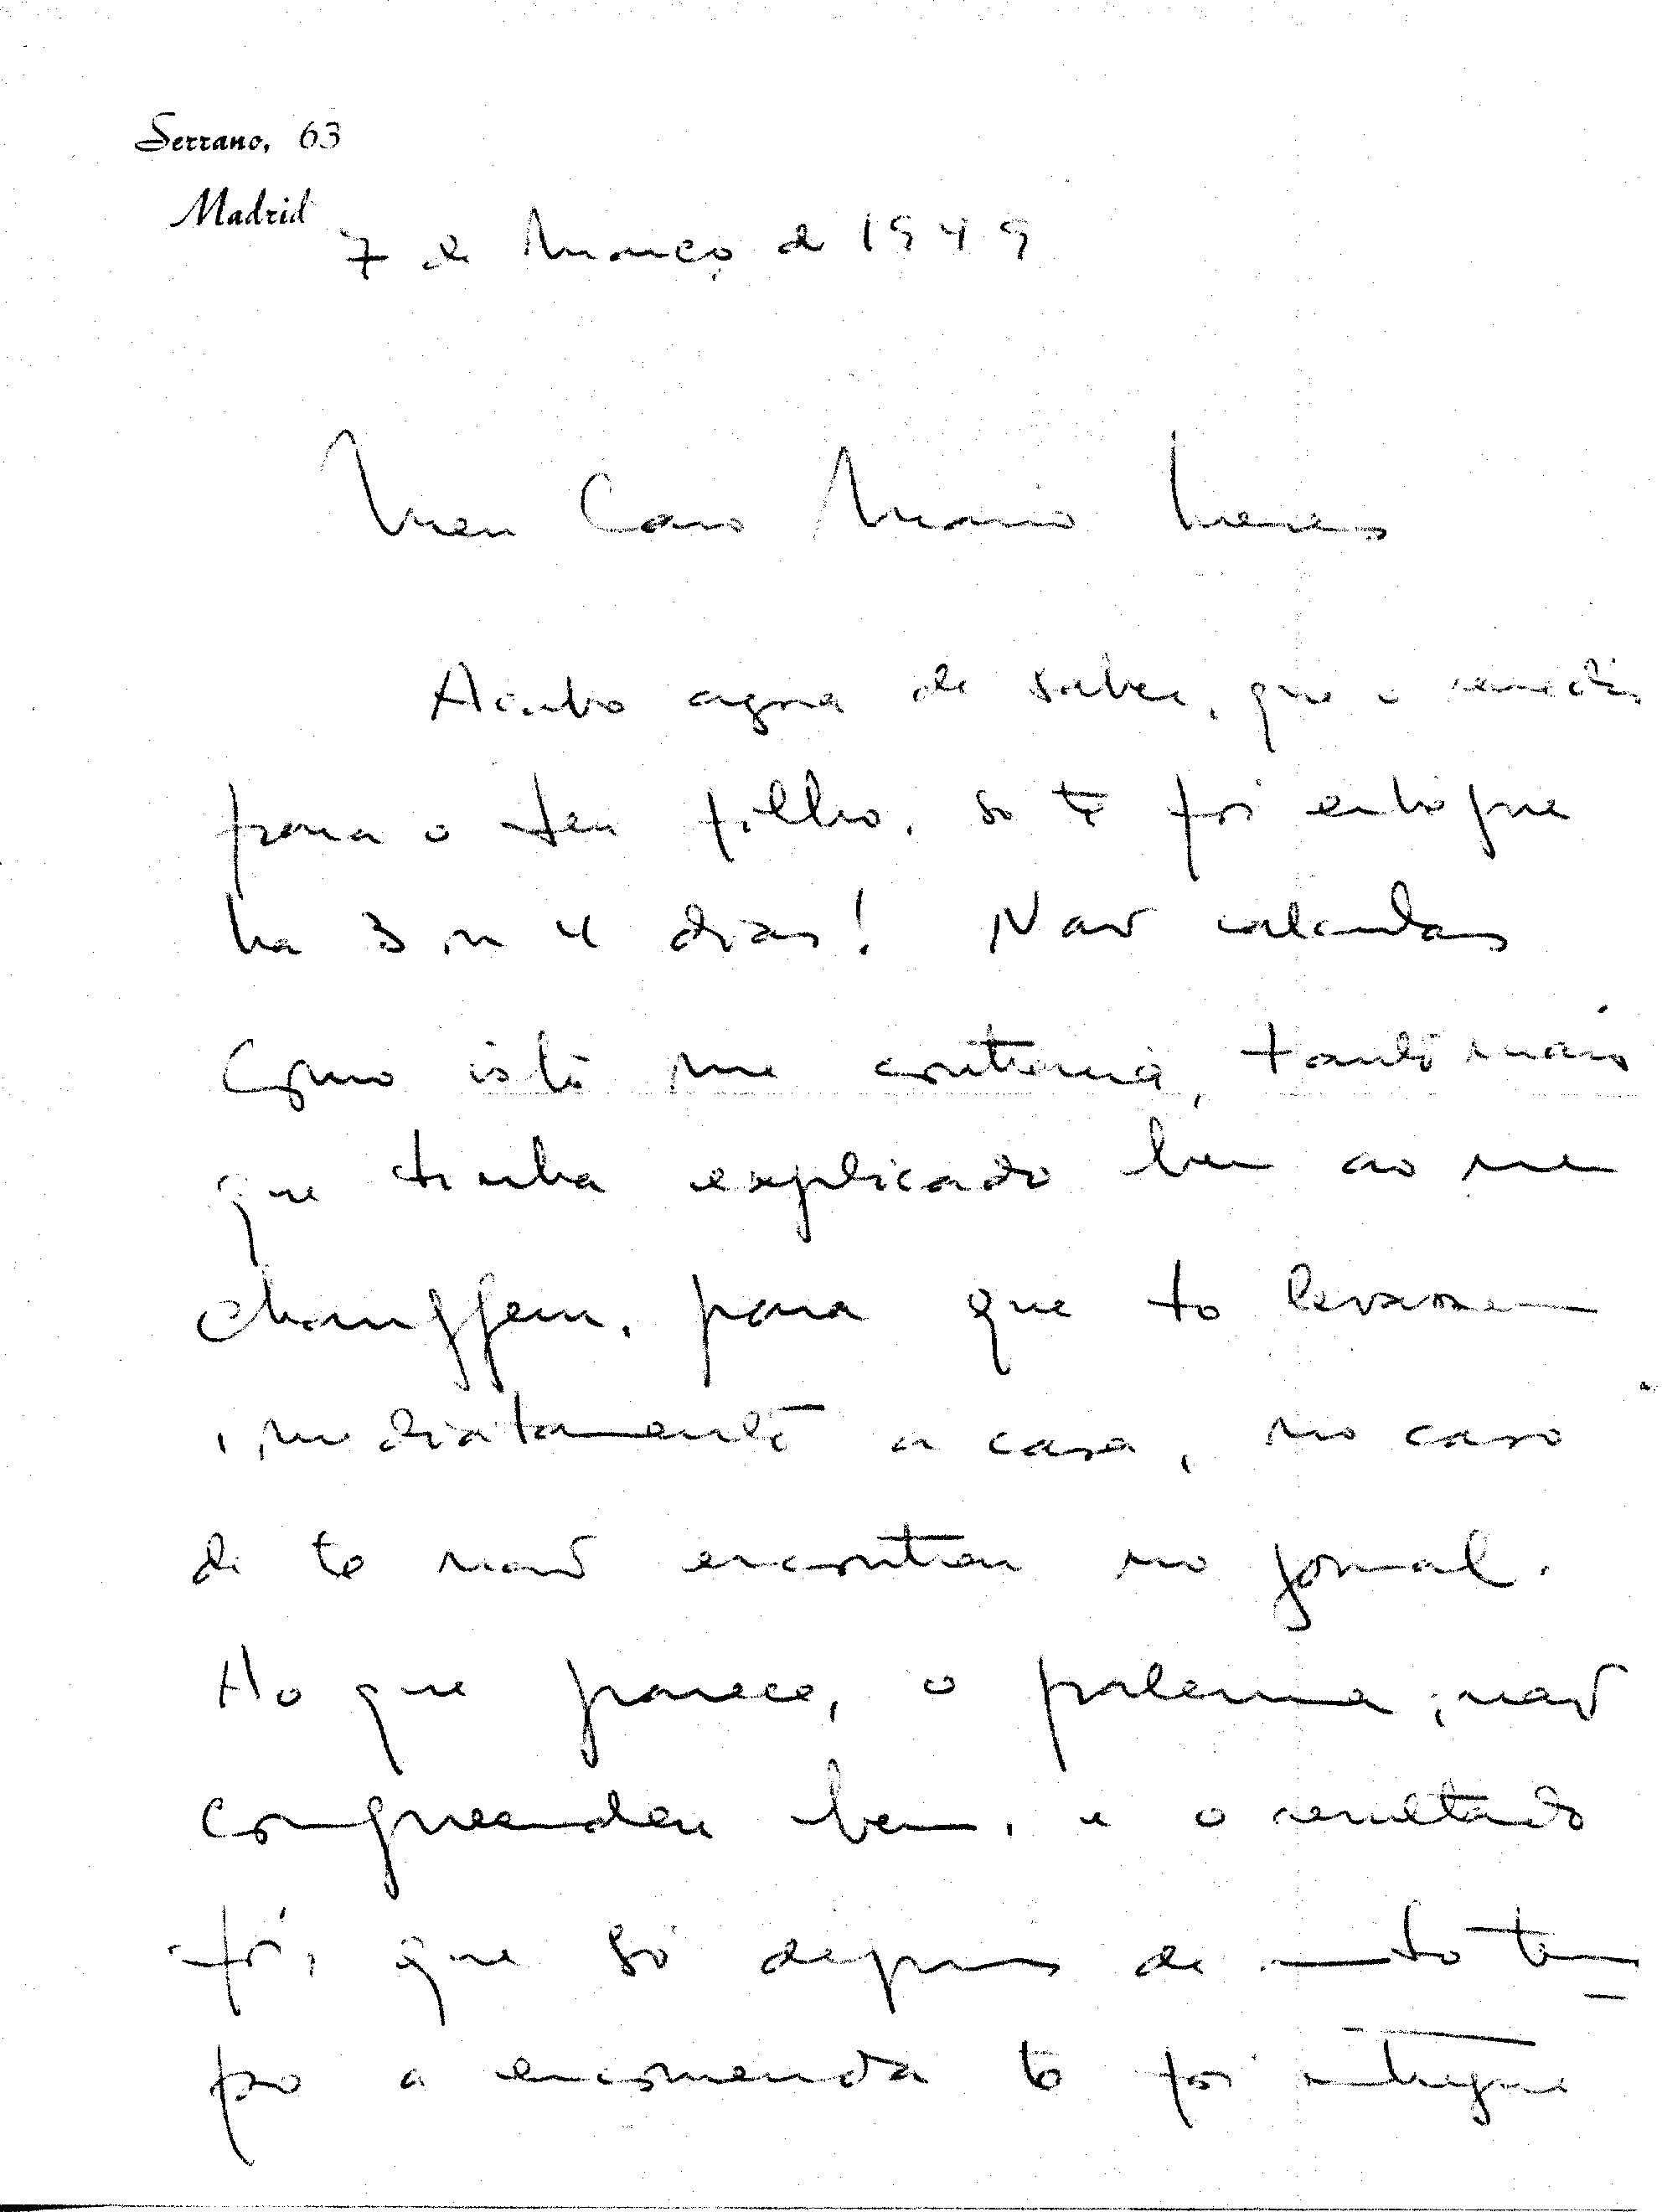 Serrano, 63
Madrid
7 de Março de 1949
Meu Caro Mario Neves
Acabo agora de saber, que o remedio
para o teu filho, so te foi entregue
ha 3 ou 4 dias! Nao calculas
como isto me contraria, tanto mais
que tinha explicado bem ao meu
chauffeur, para que to levassem
imediatamente a casa, no caso
de te nao encontrar no jornal.
Ao que parece, o palerma, nao
compreendeu bem, e o resultado
foi, que só depois de muito tem
po a encomenda te foi entregue